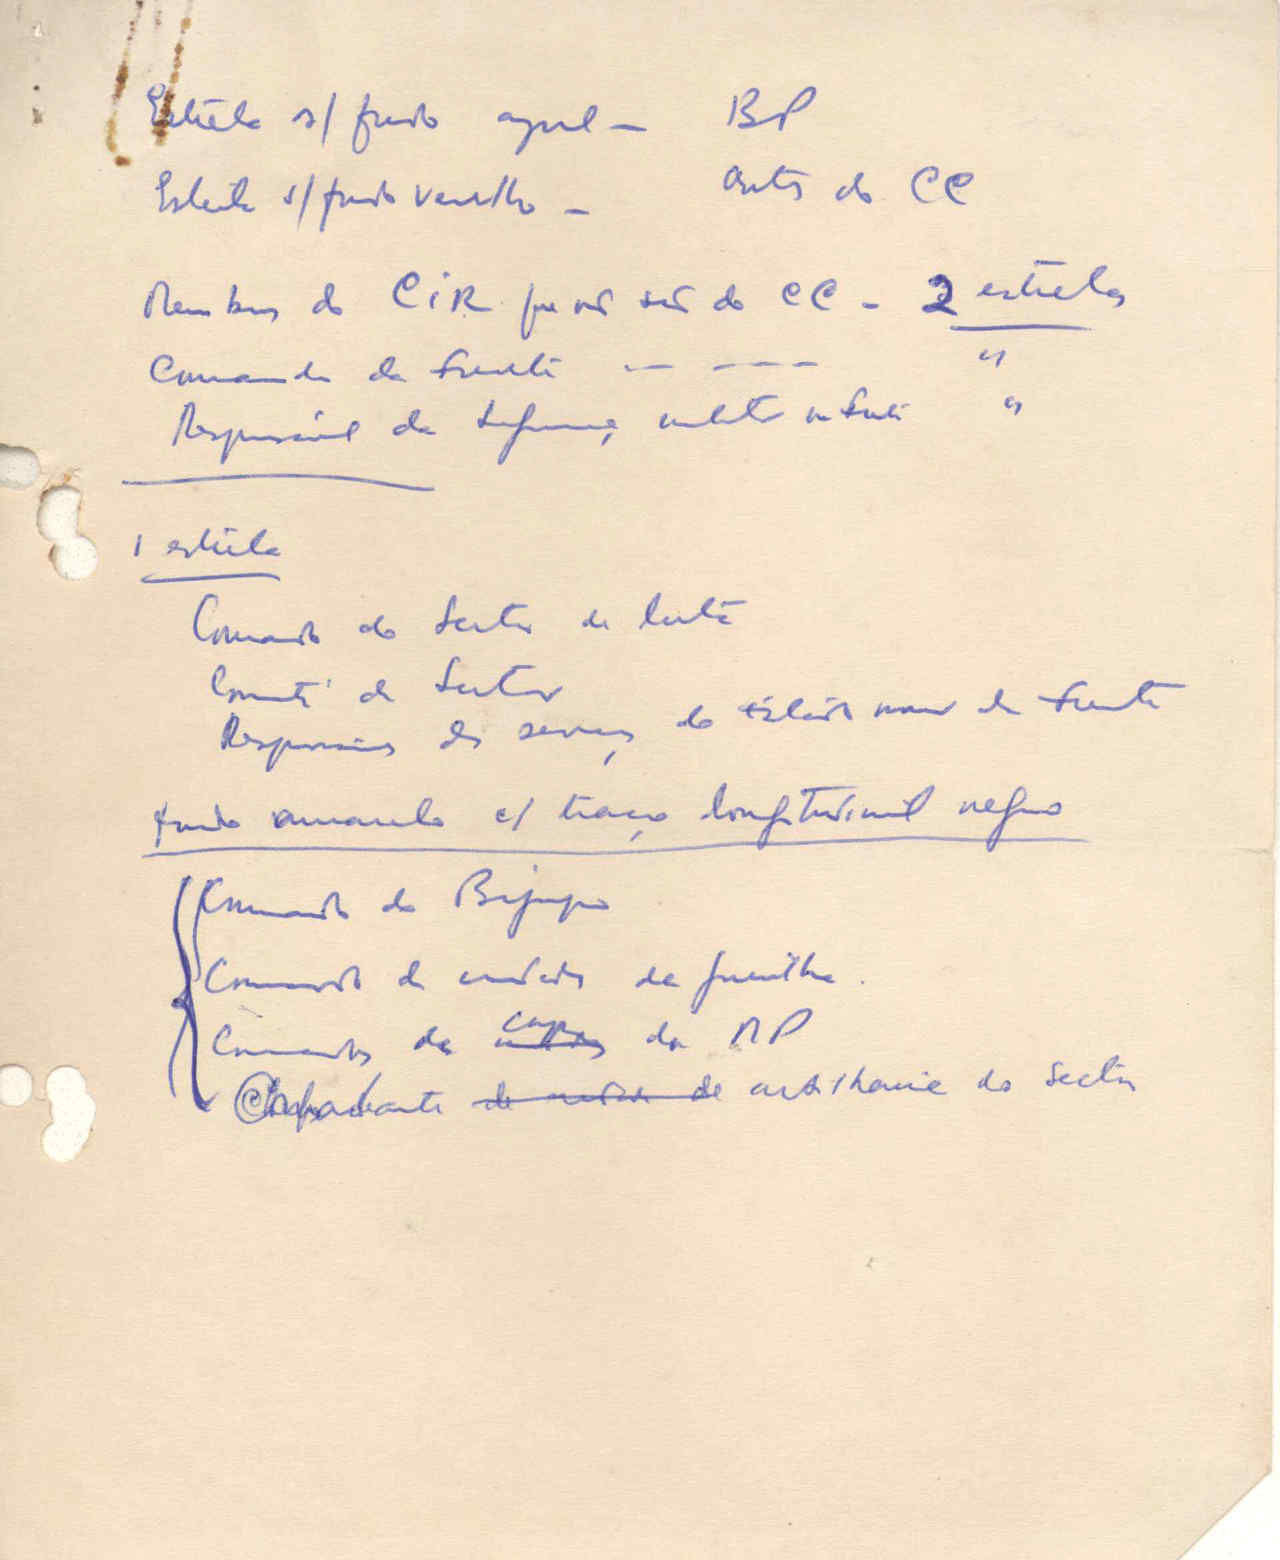 Estrela s/ fundo azul — BP
Estrela s/ fundo vermelho — Outros do CC
Membros do CIR que não são do CC — 2 estrelas
Comando da Frente — — — — — "
Responsável da Segurança na Frente "
1 estrela
Comando do Sector de luta
Comité de Sector
Responsáveis dos serviços do Estado maior da Frente
fundo amarelo c/ traço longitudinal negro
Comando do Bigrupo
Comando de unidades de guerrilha.
Comandos de corpos da MP
Comandante de artilharia do Sector